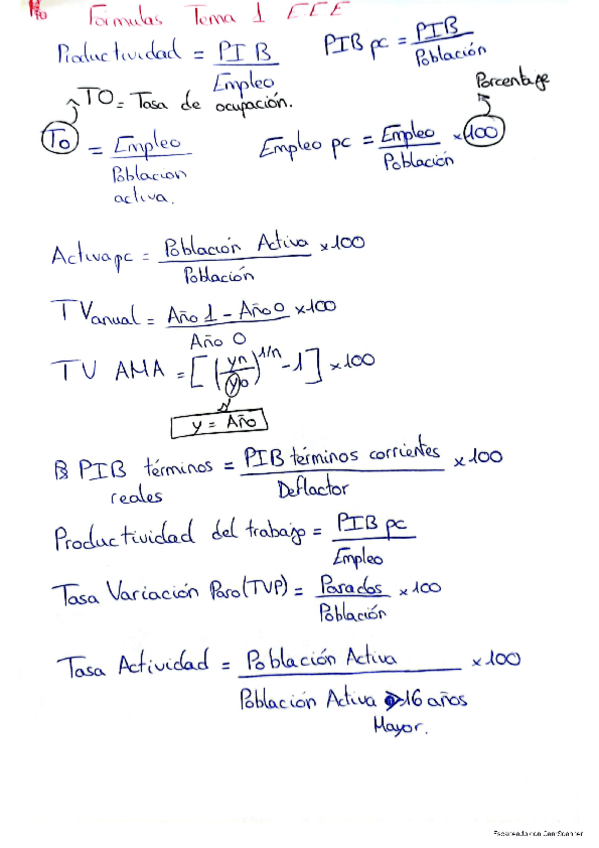 Fórmulas Tema 1 EEE
Productividad = PIB / Empleo
PIB pc = PIB / Población
TO = Tasa de ocupación.
Porcentage
To = Empleo / Poblacion activa.
Empleo pc = Empleo / Población × 100
Activa pc = Población Activa / Población × 100
TVanual = Año 1 - Año 0 / Año 0 × 100
TV AMA = [(yn / yo)^1/n - 1] × 100
y = Año
PIB términos reales = PIB términos corrientes / Deflactor × 100
Productividad del trabajo = PIB pc / Empleo
Tasa Variación Paro (TVP) = Parados / Población × 100
Tasa Actividad = Población Activa / Población Activa > 16 años × 100
Mayor.
Escaneado con CamScanner